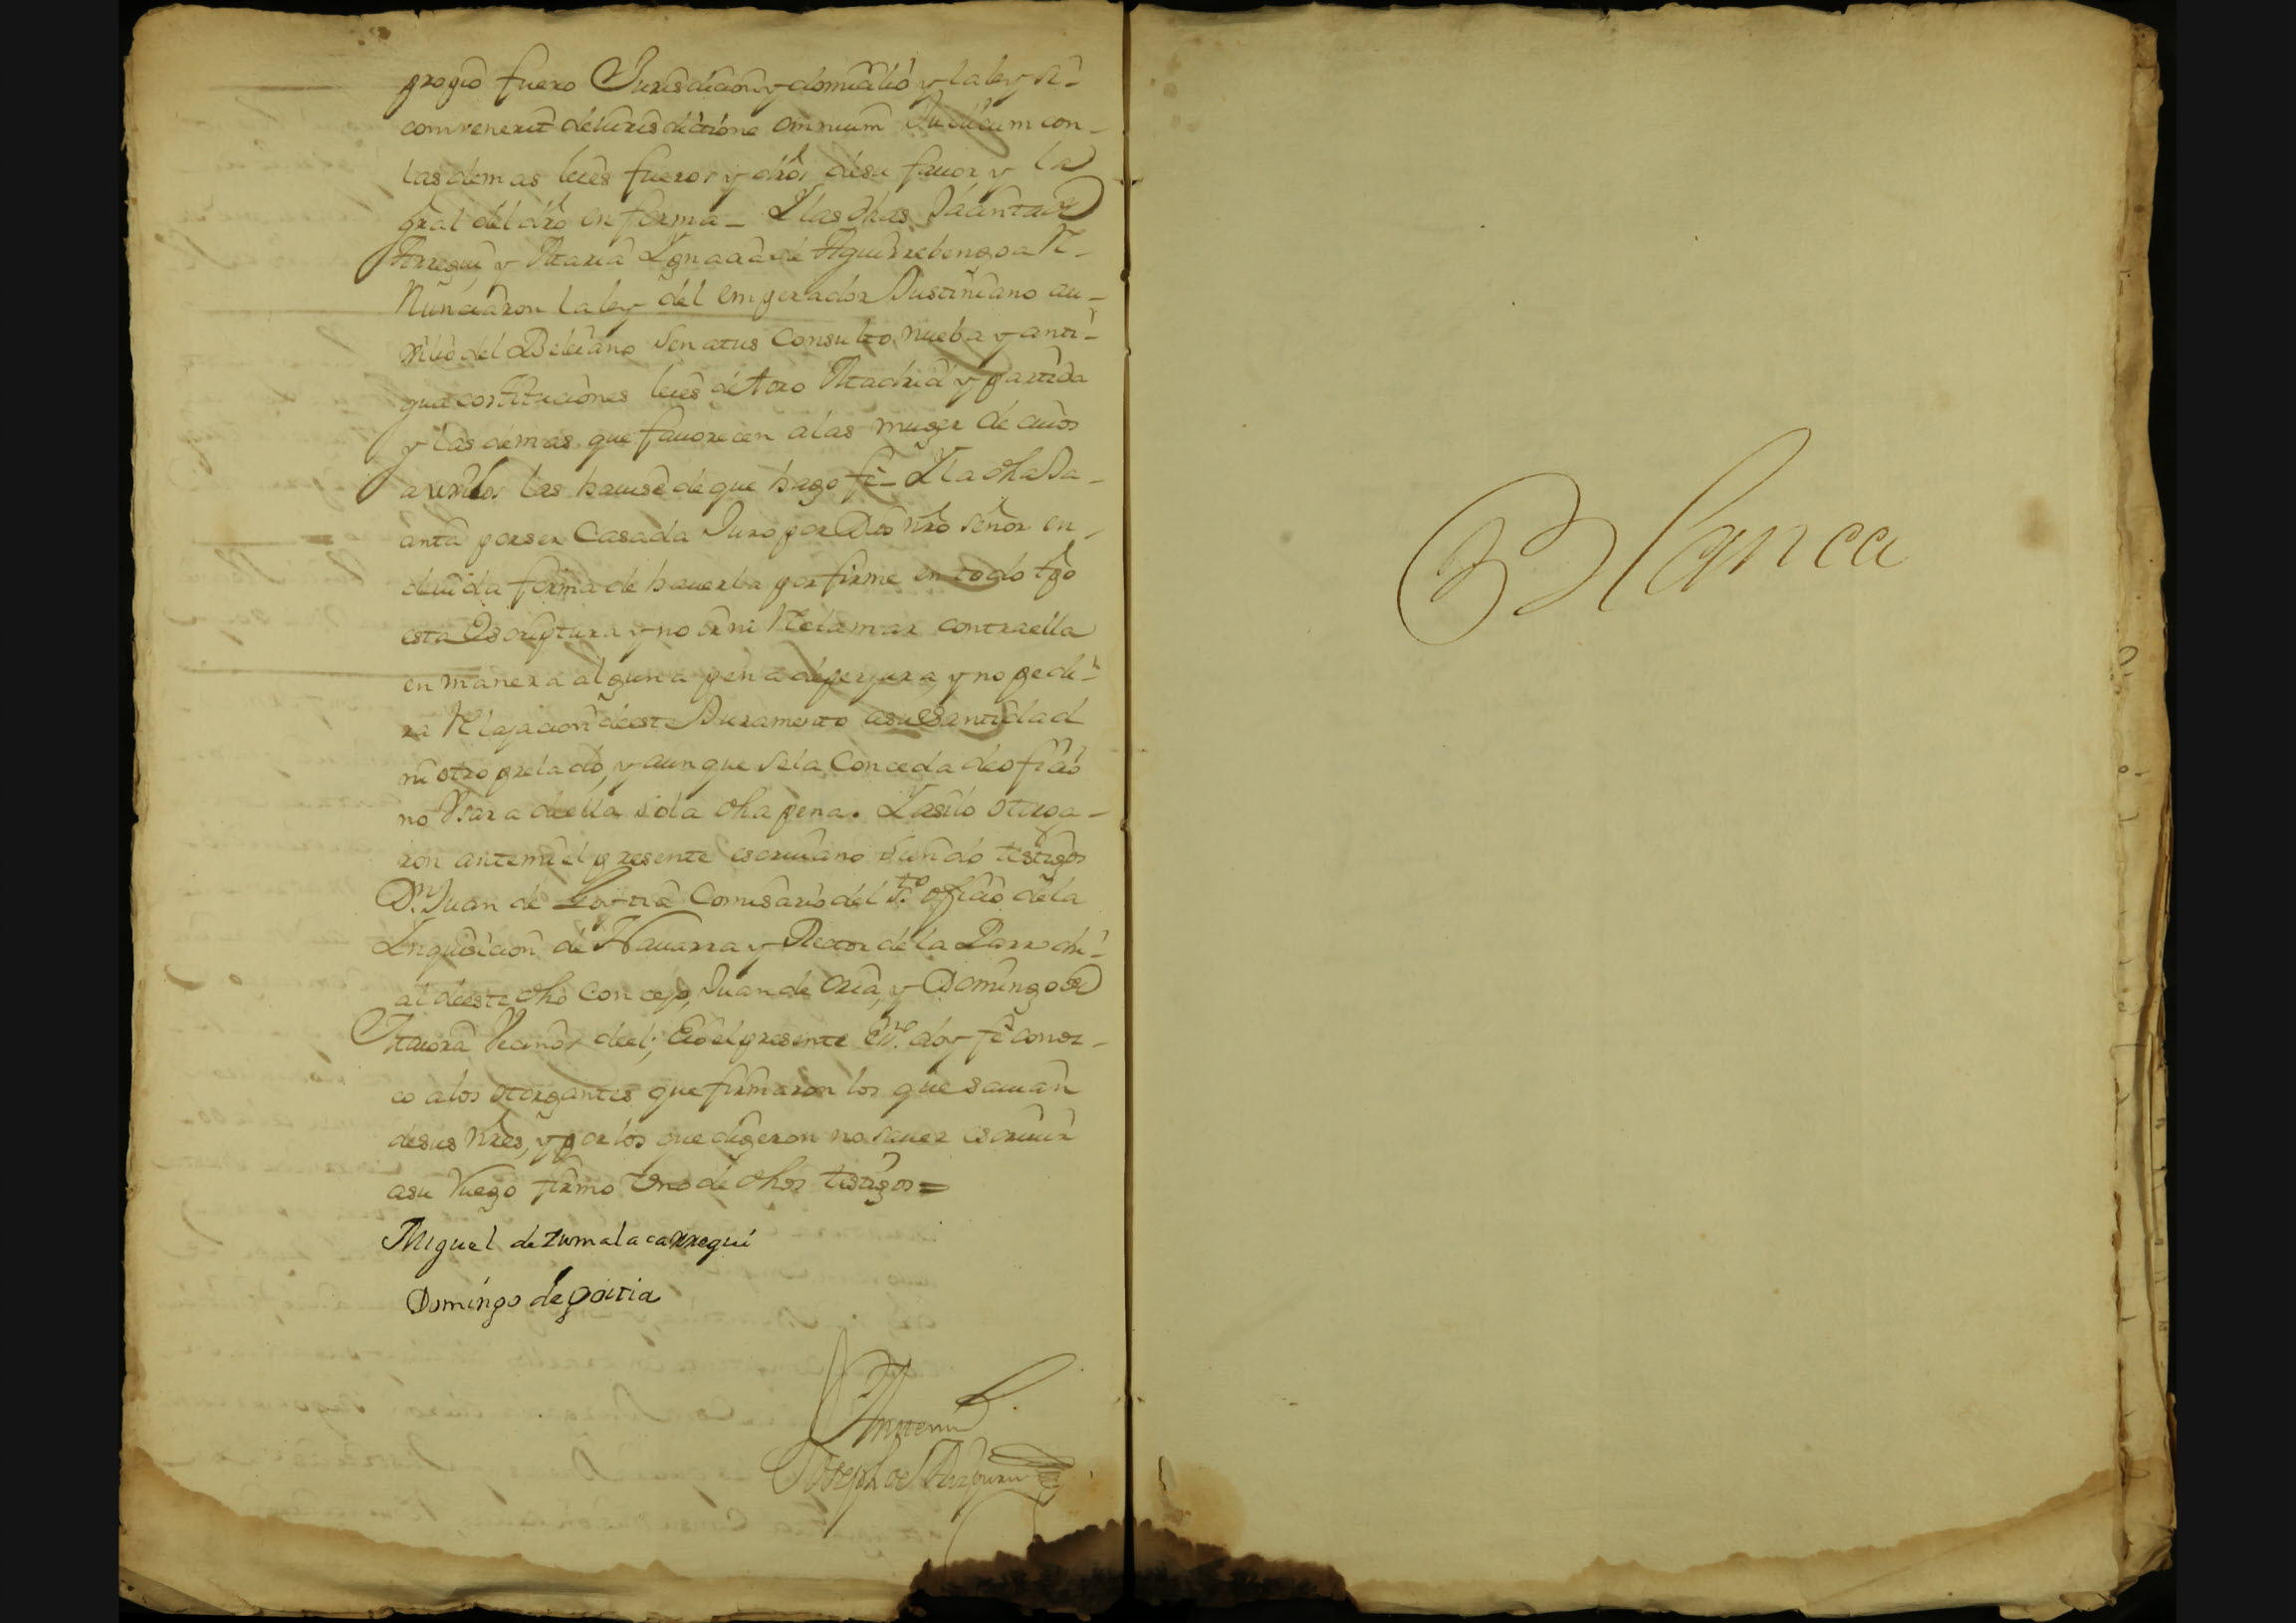 propio fuero Jurisdicion y domicilio y la ley si
convenerit de iurisdictione omnium Judicum con
las demas leies fueros y dros de su fauor y la
gral del dro en forma – Y las dhas Jacinta de
Arregui y Maria Ygnacia de Aguirrebengoa Re-
nunciaron la ley del emperador Justiniano au-
xilio del Beleiano Senatus Consulto nueba y anti-
gua costituciones leies de toro Madrid y partida
y las demas que fauorecen a las muger de cuios
auxilios las hauise de que hago fe – Y la dha Ja-
cinta por ser Casada Juro por Dios nro Señor en
deuida forma de hauerla por firme en todo tpo
esta Escriptura y no ir ni Reclamar contra ella
en manera alguna pena de perjura, y no pedi-
ra Relajacion de este Juramento a su Santidad
ni otro prelado, y aunque se la Conceda de oficio
no Vsara de ella so la dha pena. Y asi lo otorga-
ron ante mi el presente escriuano siendo testigos
Dn. Juan de Comisario del Sto. oficio de la
Inquisicion de Nauarra y Rector de la Parrochi-
al de este dho Concejo, Juan de Oria, y Domingo de
Vecinos de el; E io el presente Esno. doy fe conoz-
co a los otorgantes que firmaron los que sauian
de sus nres, y por los que digeron no sauer escriuir
a su Ruego firmo vno de dhos testigos =
Miguel de zumalacarregui
Domingo de goitia
Ante mi
Joseph de Aizpuru
Blanca